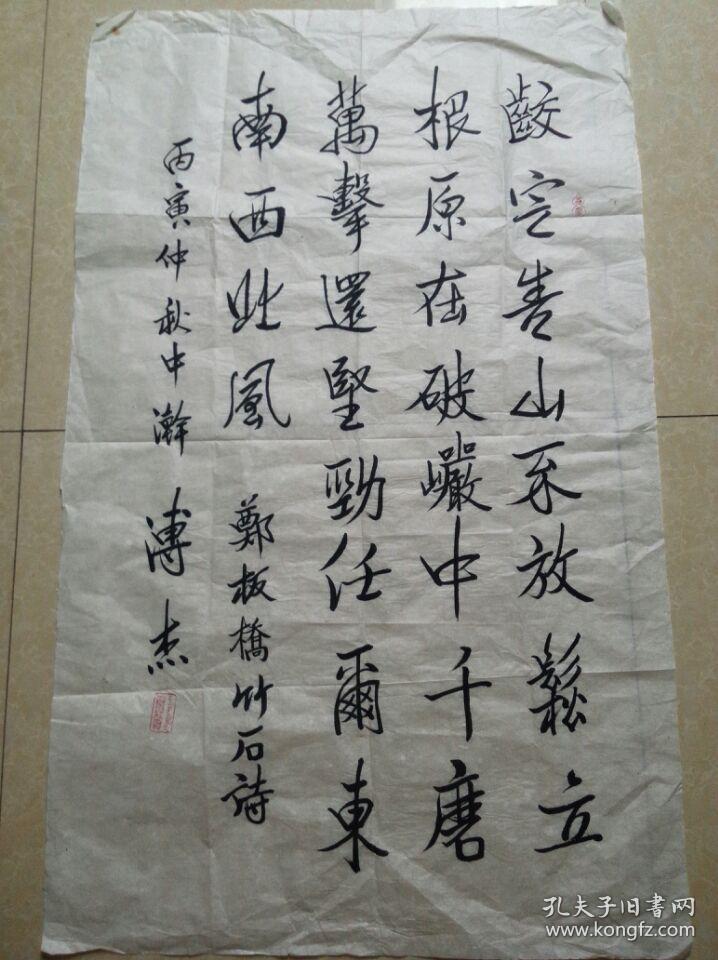 齩定青山不放鬆立
根原在破巖中千磨
萬擊還堅勁任爾東
南西北風
鄭板橋竹石詩
丙寅仲秋中瀚
溥杰
孔夫子旧书网
www.kongfz.com